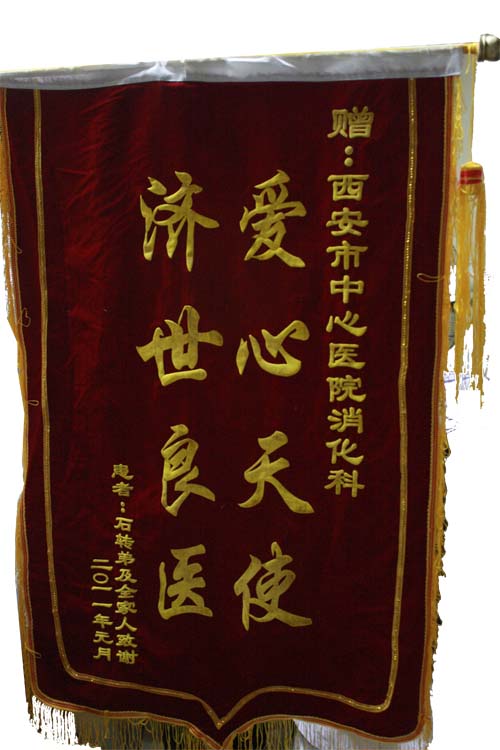 赠：西安市中心医院消化科
爱心天使
济世良医
患者：石转弟及全家人致谢
二〇一一年元月